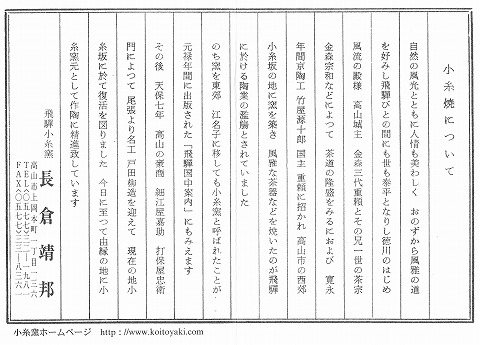 小糸焼について
自然の風光とともに人情も美わしく　おのずから風雅の道
を好みし飛騨びとの間にも世も泰平となりし徳川のはじめ
風流の殿様　高山城主　金森三代重頼とその兄一世の茶宗
金森宗和などによつて　茶道の隆盛をみるにおよび　寛永
年間京陶工　竹屋源十郎　国主　重頼に招かれ　高山市の西郊
小糸坂の地に窯を築き　風雅な茶器などを焼いたのが飛騨
に於ける陶業の濫觴とされていました
のち窯を東郊　江名子に移しても小糸窯と呼ばれたことが
元禄年間に出版された「飛騨国中案内」にもみえます
その後　天保七年　高山の豪商　細江屋嘉助　打保屋忠衛
門によつて　尾張より名工　戸田柳造を迎えて　現在の地小
糸坂に於て復活を図りました　今日に至つて由縁の地に小
糸窯元として作陶に精進致しています
飛騨小糸窯
長倉靖邦
高山市上岡本町一丁目一三六
小糸窯ホームページ　http://www.koitoyaki.com